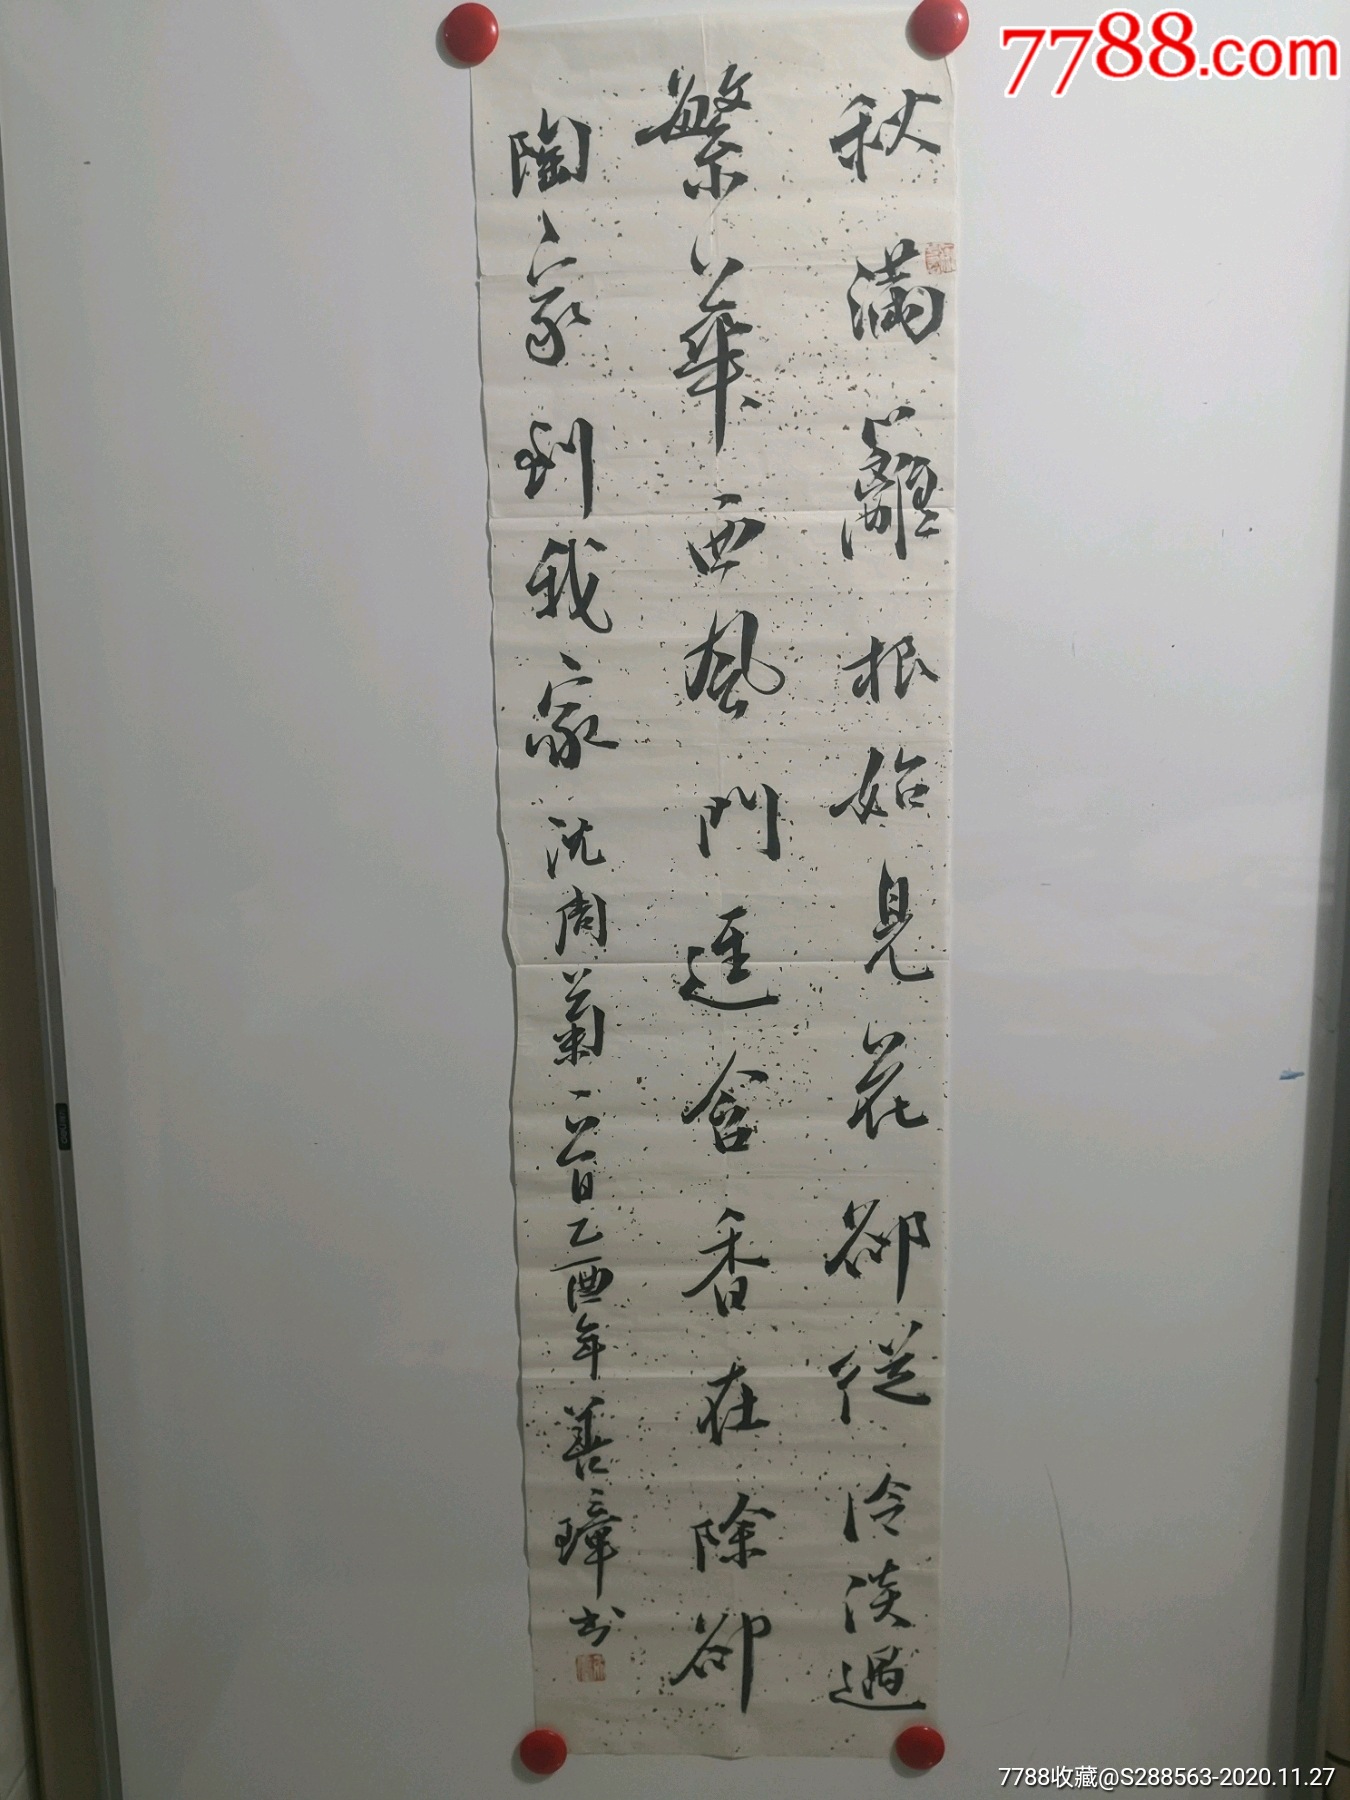 7788.com
秋滿籬根始見花卻從冷淡過
繁華西風門逕含香在除卻
陶家到我家沈周菊一首乙酉年善璋书
7788收藏@S288563-2020.11.27